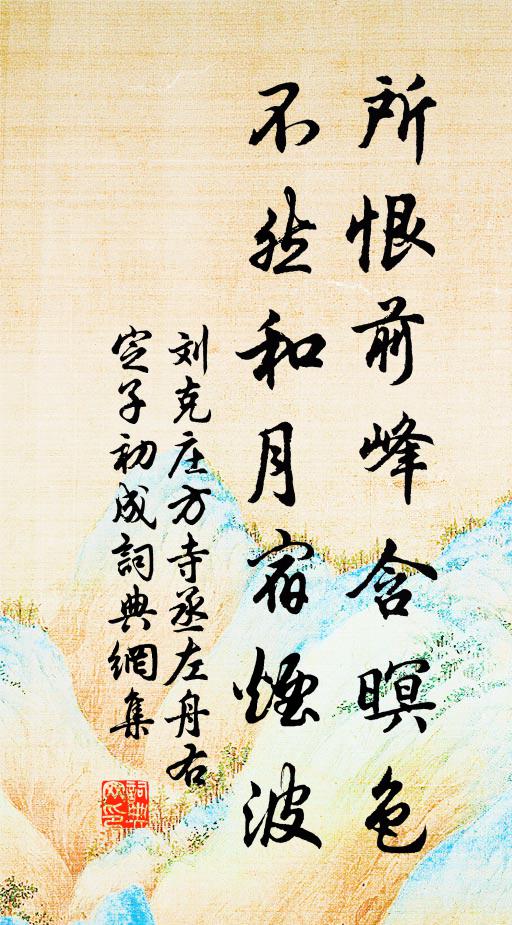 所恨前峰含暝色
不然和月宿烟波
刘克庄方寺丞左舟右
定子初成詞典網集
詞典網印